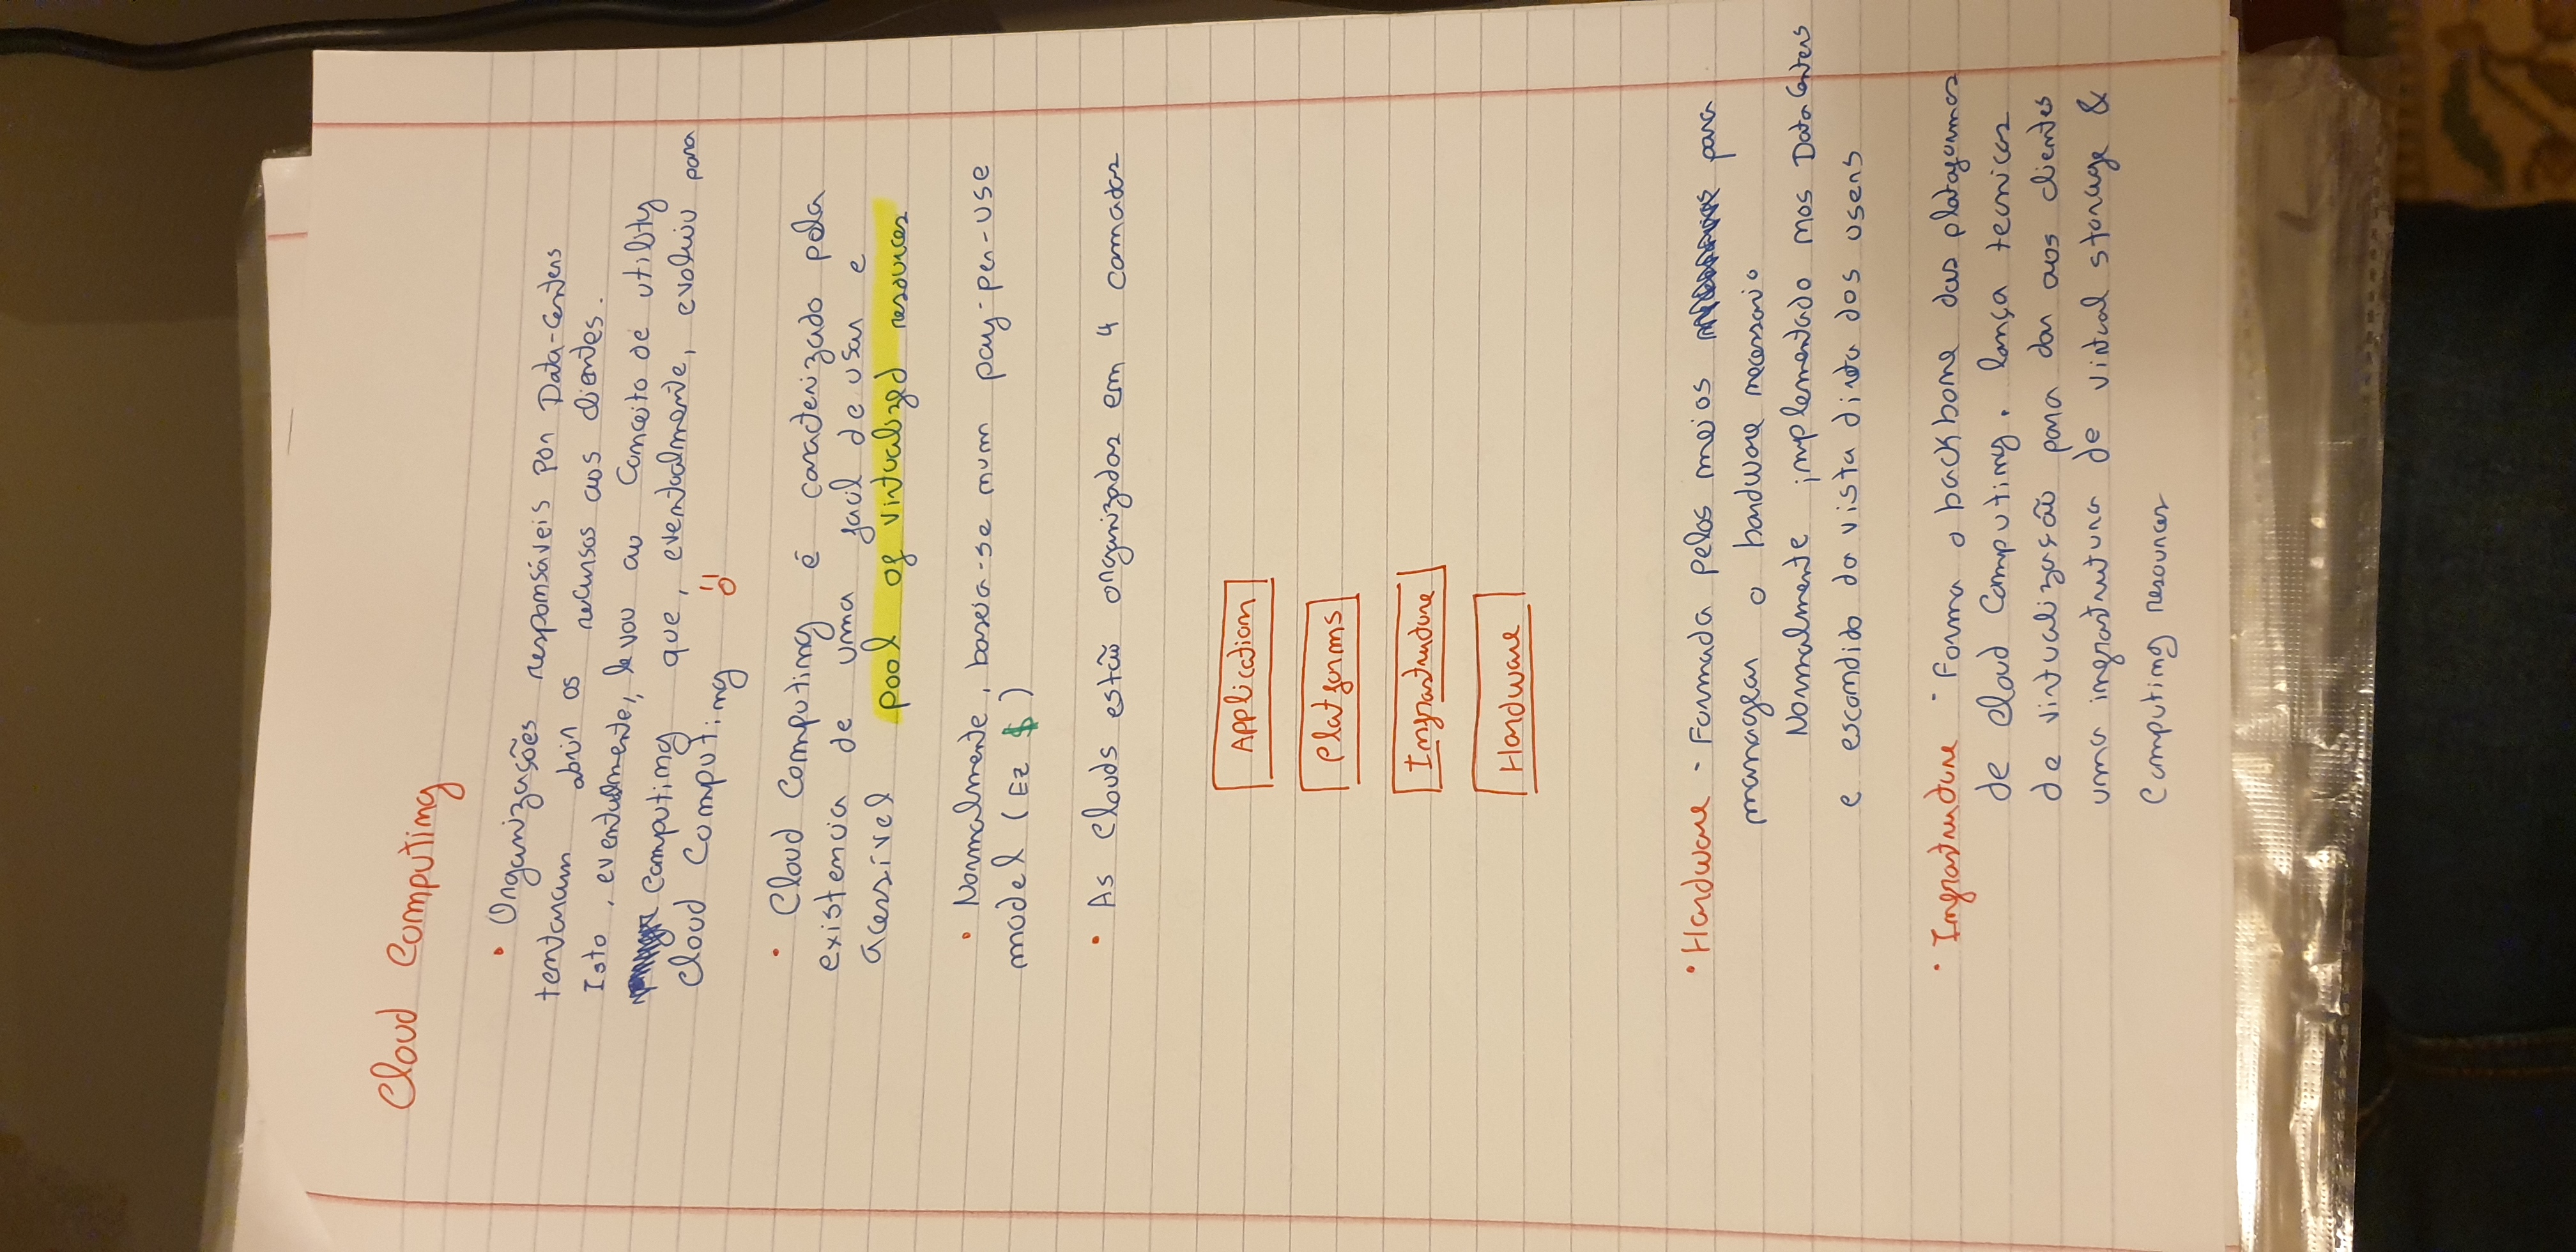 Cloud Computing
• Organizações responsáveis por Data-Centers
tentaram abrir os recursos aos clientes.
Isto, eventualmente, levou ao conceito de utility
computing que, eventualmente, evoluiu para
cloud computing
• Cloud Computing é caracterizado pela
existencia de uma facil de usar e
acessível pool of virtualized resources
• Normalmente, baseia-se num pay-per-use
model (Ez $)
• As Clouds estão organizadas em 4 camadas
Application
Platforms
Infrastructure
Hardware
• Hardware - Formada pelos meios para
managear o hardware necessario
Normalmente implementado nos Data Centers
e escondido da vista direta dos users
• Infrastructure - Forma o backbone das plataformas
de cloud computing. lança tecnicas
de virtualização para dar aos clientes
uma infrastrutura de virtual storage &
computing resources